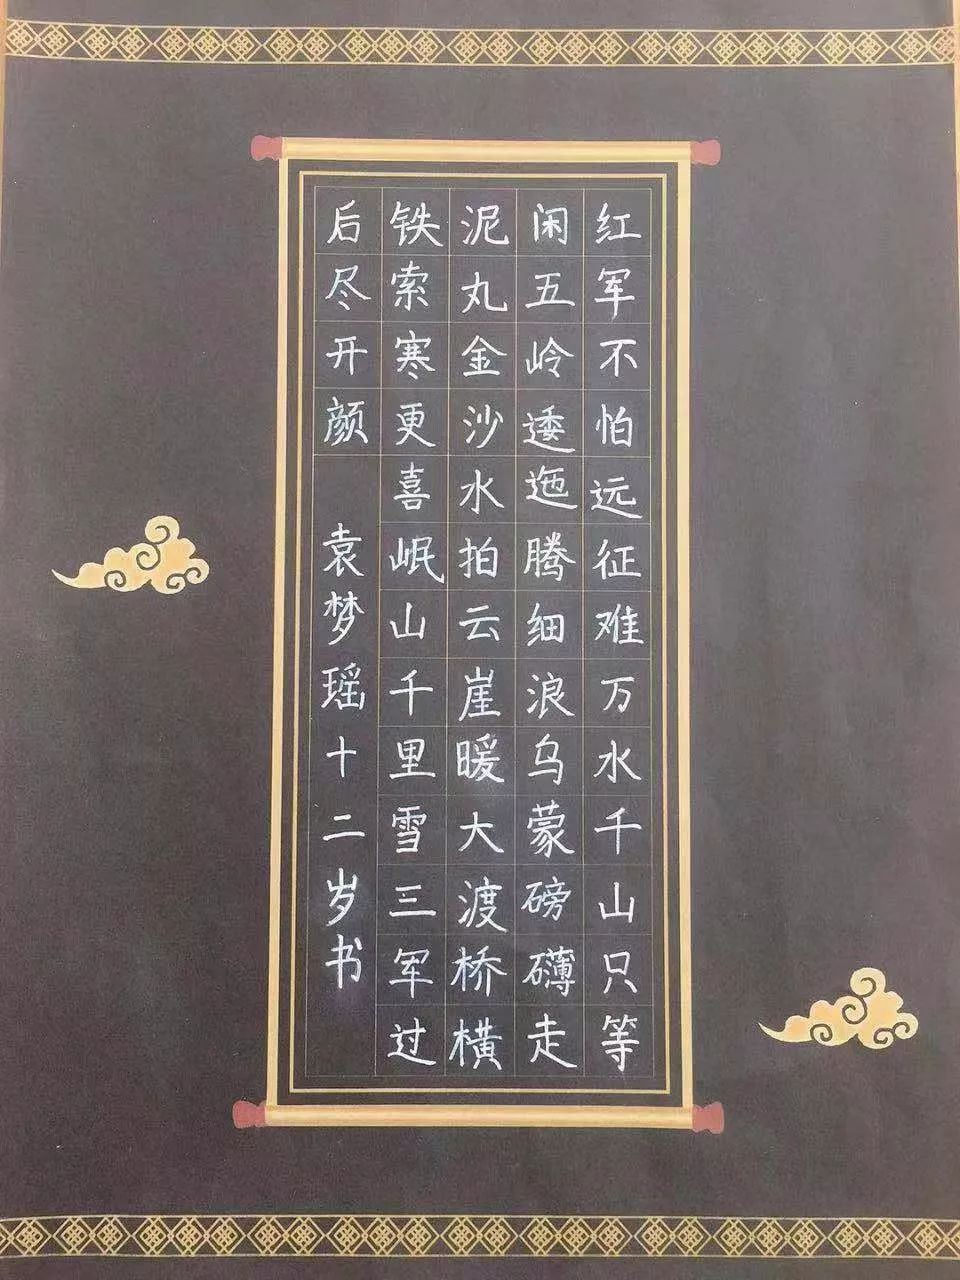 红军不怕远征难万水千山只等
闲五岭逶迤腾细浪乌蒙磅礴走
泥丸金沙水拍云崖暖大渡桥横
铁索寒更喜岷山千里雪三军过
后尽开颜
袁梦瑶十二岁书